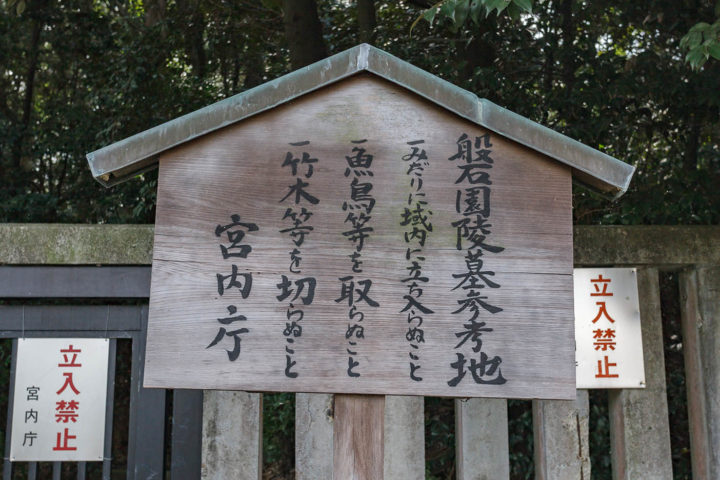 般石園陵墓参考地
一みだりに域内に立ち入らぬこと
一魚鳥等を取らぬこと
一竹木等を切らぬこと
宮内庁
立入禁止
立入禁止
宮内庁